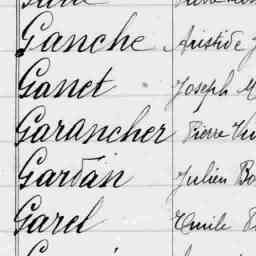 Ganche Aristide
Ganet Joseph M
Garancher Pierre
Gardan Julien Bo
Garel Emile